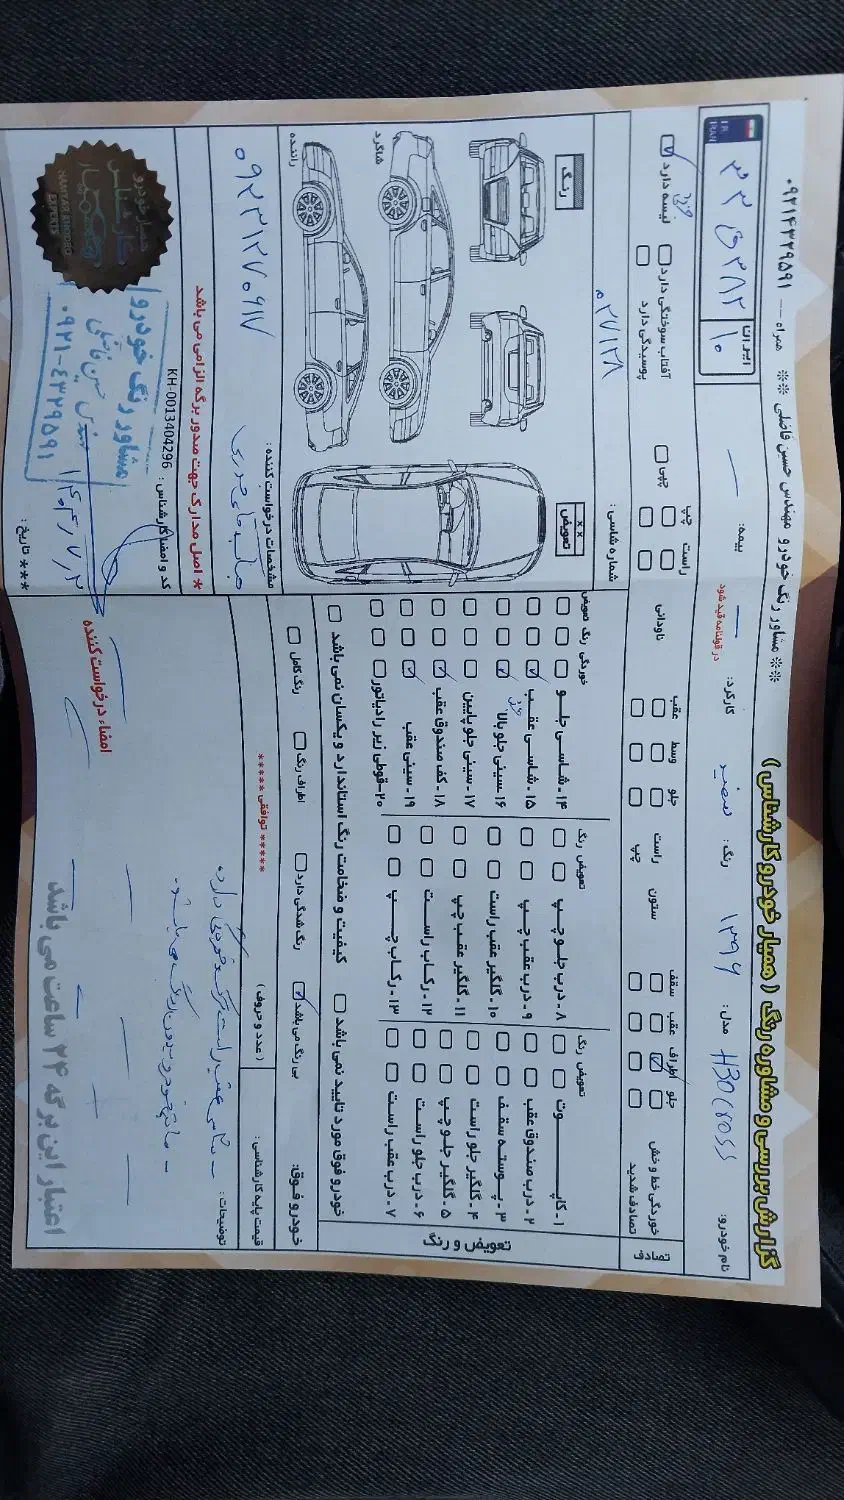 گزارش بررسی و مشاوره رنگ ( همیار خودرو کارشناس )
** مشاور رنگ خودرو مهندس حسین فاضلی ** همراه — ۰۹۲۱۴۳۲۹۵۹۱
نام خودرو: H30 cross
مدل: ۱۳۹۶
رنگ: سفید
کارکرد: —
در قولنامه قید شود
بیمه: —
I.R. IRAN
۲۲ ق ۳۸۲
ایران ۱۰
تصادف
خوردگی خط و خش
تصادف شدید
جلو اطراف عقب سقف
ستون
راست
چپ
جلو وسط عقب
ناودانی
راست
چپ
چپی
آفتاب سوختگی دارد
پوسیدگی دارد
لیسه دارد
جزئی
شماره شاسی: ۰۲۷۱۲۸
تعویض و رنگ
تعویض رنگ
۱- کاپوت
۲- درب صندوق عقب
۳- پوسته سقف
۴- گلگیر جلو راست
۵- گلگیر جلو چپ
۶- درب جلو راست
۷- درب عقب راست
تعویض رنگ
۸- درب جلو چپ
۹- درب عقب چپ
۱۰- گلگیر عقب راست
۱۱- گلگیر عقب چپ
۱۲- رکاب راست
۱۳- رکاب چپ
خوردگی رنگ تعویض
۱۴- شاسی جلو
۱۵- شاسی عقب
۱۶- سینی جلو بالا
۱۷- سینی جلو پایین
۱۸- کف صندوق عقب
۱۹- سینی عقب
۲۰- قوطی زیر رادیاتور
رنگ
×× تعویض
شاگرد
راننده
خودرو فوق مورد تایید نمی باشد
کیفیت و ضخامت رنگ استاندارد و یکسان نمی باشد
خودرو فوق:
بی رنگ می باشد
رنگ شدگی دارد
اطراف رنگ
رنگ کامل
قیمت پایه کارشناسی:
( عدد و حروف )
***** توافقی *****
مشخصات درخواست کننده:
۰۹۲۳۱۲۷۰۶۱۷
توضیحات:
* اصل مدارک جهت صدور برگه الزامی می باشد
کد و امضا کارشناس: KH-0013404296
امضاء درخواست کننده
مشاور رنگ خودرو
۰۹۲۱-۴۳۲۹۵۹۱
همیار خودرو
کارشناس
HAMYAR KHODRO
EXPERTS
*** تاریخ: ۱۴۰۴/۷/۲
اعتبار این برگه ۲۴ ساعت می باشد